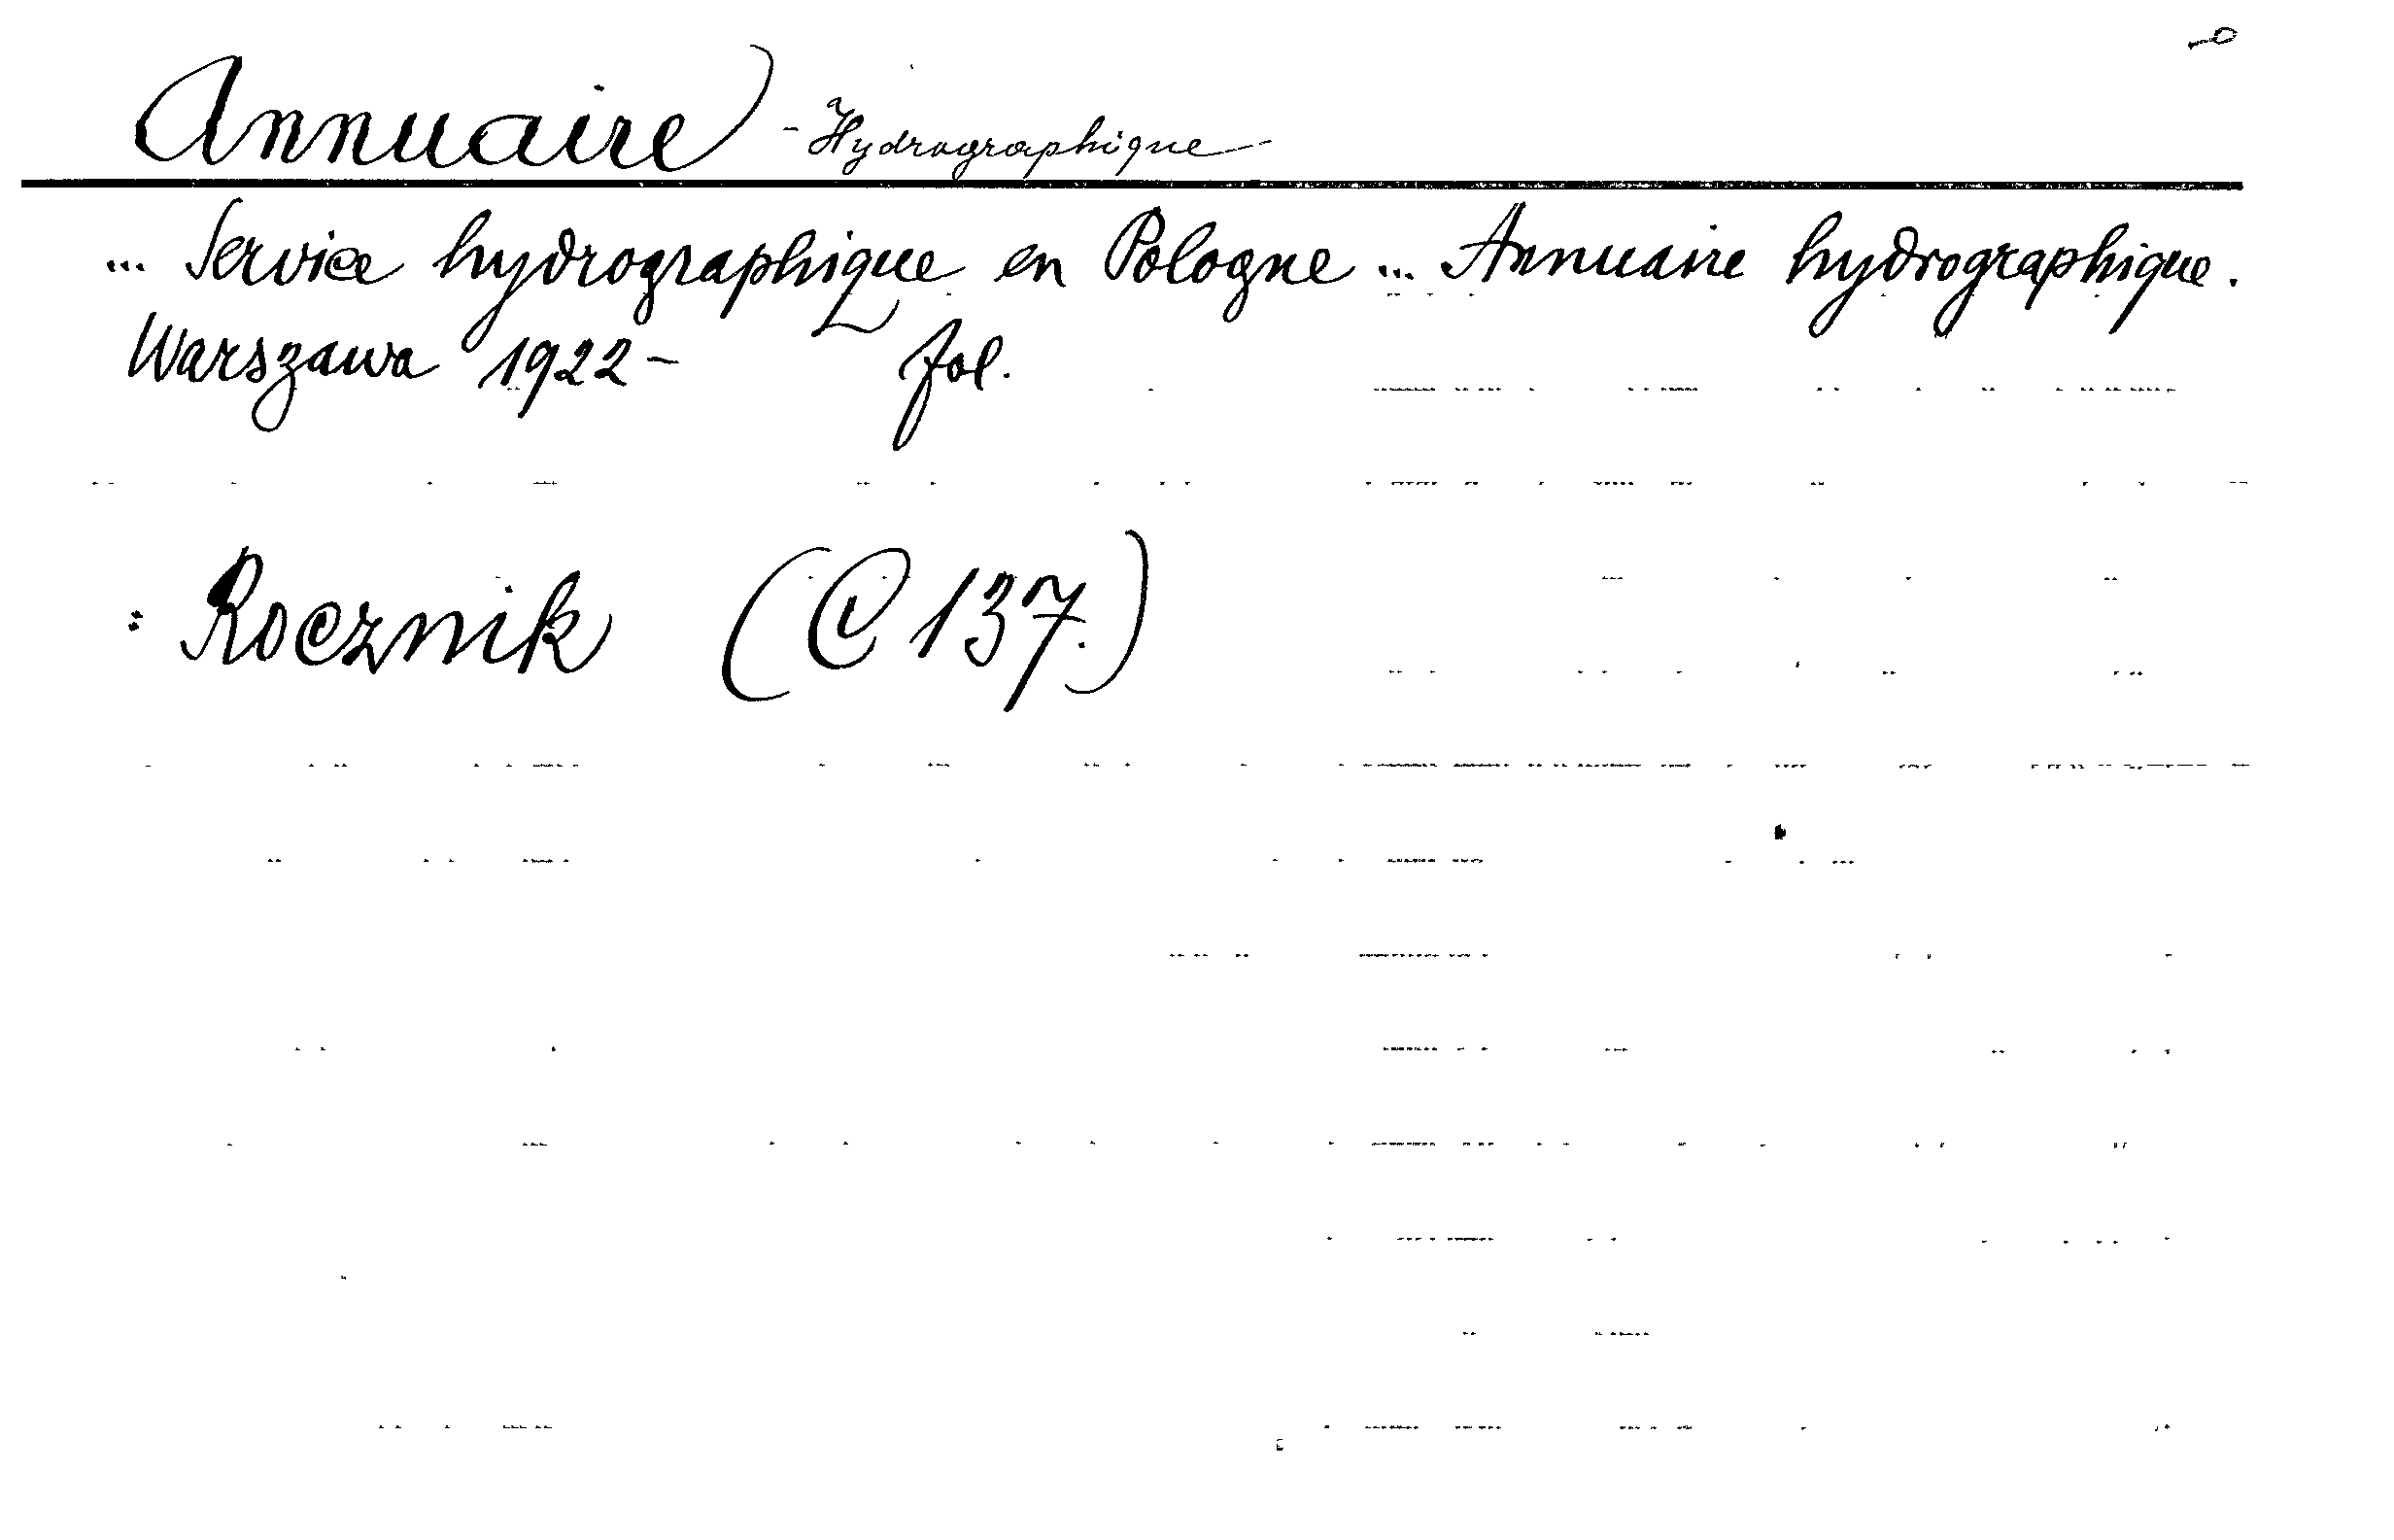 Annuaire - Hydrographique -
... Service hydrographique en Pologne ... Annuaire hydrographique.
Warszawa 1922 - fol.
: Rocznik (C 137.)